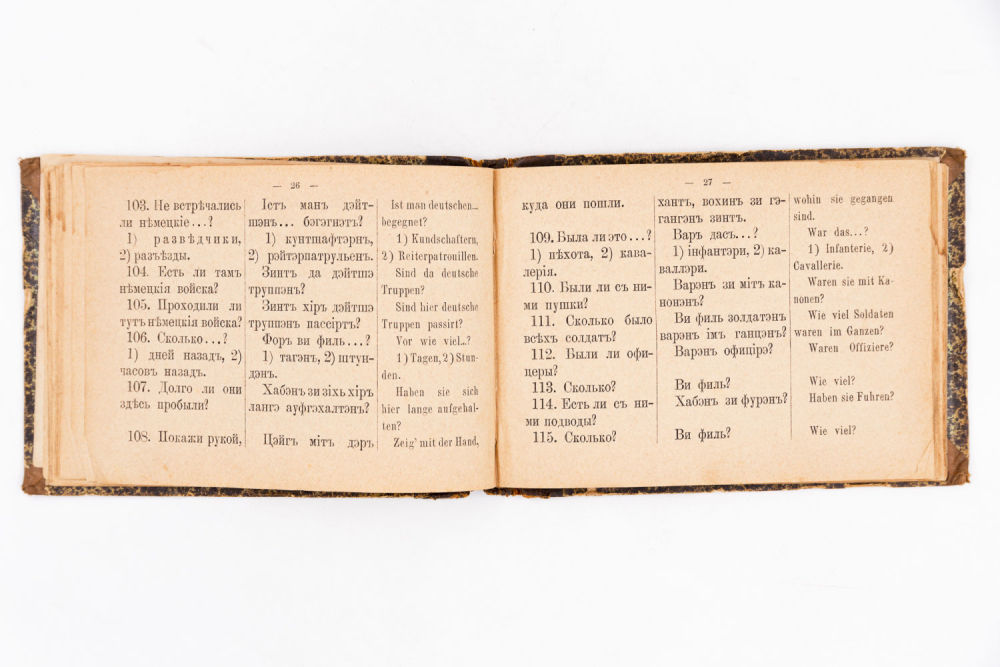 — 26 —
103. Не встрѣчались
ли нѣмецкіе...?
1) развѣдчики,
2) разъѣзды.
104. Есть ли тамъ
нѣмецкія войска?
105. Проходили ли
тутъ нѣмецкія войска?
106. Сколько...?
1) дней назадъ, 2)
часовъ назадъ.
107. Долго ли они
здѣсь пробыли?
108. Покажи рукой,
Істъ манъ дэйт-
шэнъ... бэгэгнэтъ?
1) кунтшафтэрнъ,
2) рэйтэрпатрульенъ.
Зинтъ да дэйтшэ
труппэнъ?
Зинтъ хіръ дэйтшэ
труппэнъ пассіртъ?
Форъ ви филь...?
1) тагэнъ, 2) штун-
дэнъ.
Хабэнъ зи зіхь хіръ
лангэ ауфгэхалтэнъ?
Цэйгъ мітъ дэръ
Ist man deutschen...
begegnet?
1) Kundschaftern,
2) Reiterpatrouillen.
Sind da deutsche
Truppen?
Sind hier deutsche
Truppen passirt?
Vor wie viel...?
1) Tagen, 2) Stun-
den.
Haben sie sich
hier lange aufgehal-
ten?
Zeig' mit der Hand,
— 27 —
куда они пошли.
109. Была ли это...?
1) пѣхота, 2) кава-
лерія.
110. Были ли съ ни-
ми пушки?
111. Сколько было
всѣхъ солдатъ?
112. Были ли офи-
церы?
113. Сколько?
114. Есть ли съ ни-
ми подводы?
115. Сколько?
хантъ, вохинъ зи гэ-
гангэнъ зинтъ.
Варъ дасъ...?
1) інфантэри, 2) ка-
валлэри.
Варэнъ зи мітъ ка-
нонэнъ?
Ви филь золдатэнъ
варэнъ імъ ганцэнъ?
Варэнъ офицірэ?
Ви филь?
Хабэнъ зи фурэнъ?
Ви филь?
wohin sie gegangen
sind.
War das...?
1) Infanterie, 2)
Cavallerie.
Waren sie mit Ka-
nonen?
Wie viel Soldaten
waren im Ganzen?
Waren Offiziere?
Wie viel?
Haben sie Fuhren?
Wie viel?